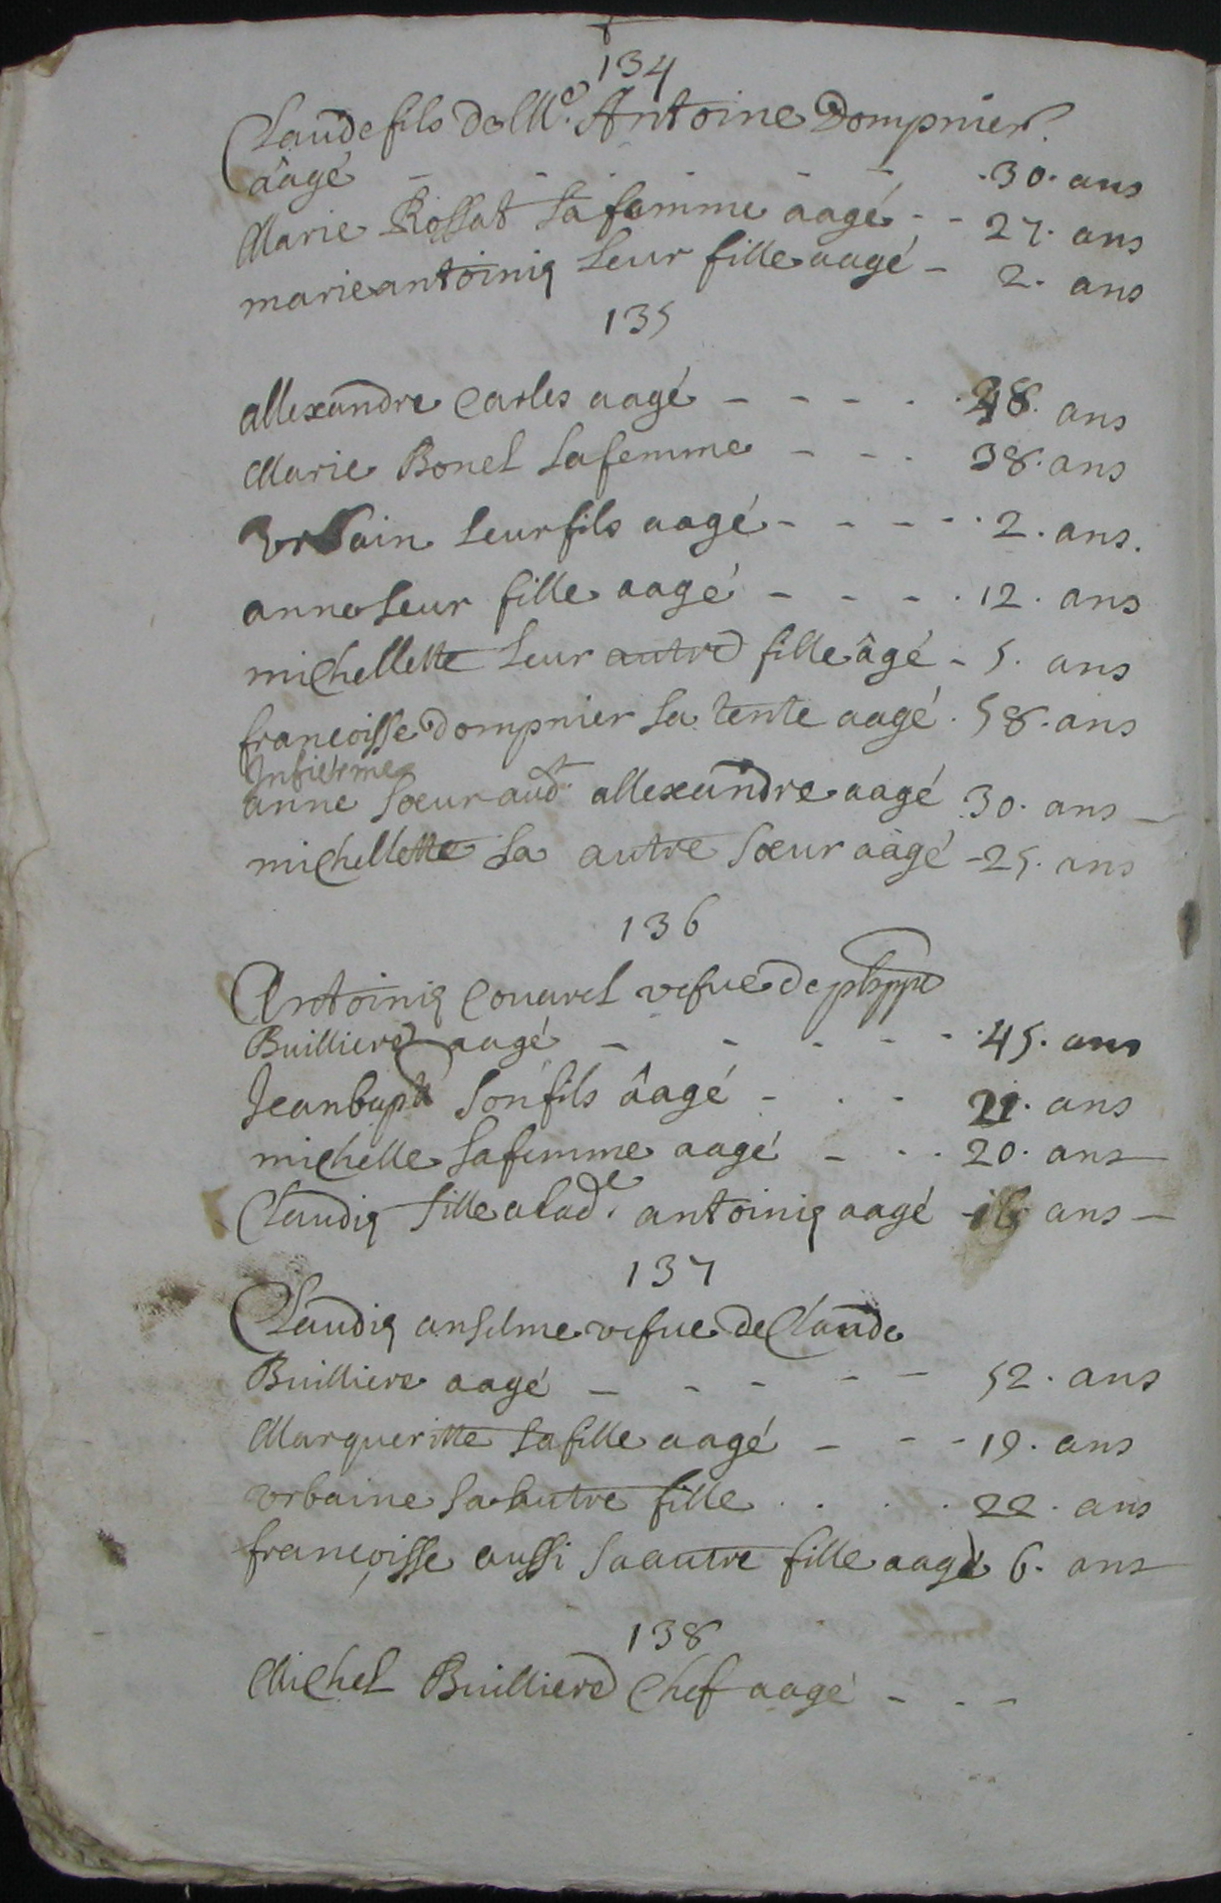 134
Claude fils de Me. Antoine Dompnier
âagé - - - - - - 30. ans
Marie Rossat sa femme aagé - - 27. ans
marie antoinig leur fille aagé - 2. ans
135
allexandre Carles aagé - - - - - 48. ans
Marie Bonel sa femme - - - 38. ans
Urbain leur fils aagé - - - - - 2. ans.
anne leur fille aagé - - - - 12. ans
michellette leur autre fille âgé - 5. ans
francoisse Dompnier sa tente aagé. 58. ans
Infierme
anne sœur aud.t allexandre aagé 30. ans -
michellette sa autre sœur aagé - 25. ans
136
Antoinig Couarel vefue de phppe
Buillierd aagé - - - - - - 45. ans
Jean bapt son fils âagé - - - ans
michelle sa femme aagé - - - 20. ans
Claudig fille a lad.e antoinig aagé - ans -
137
Claudig anselme vefue de Claude
Builliere aagé - - - - - 52. ans
Margueritte sa fille aagé - - - 19. ans
vrbaine sa autre fille . . . . 22. ans
françoisse aussi sa autre fille aagé 6. ans
138
Michel Buillierd Chef aagé - - -